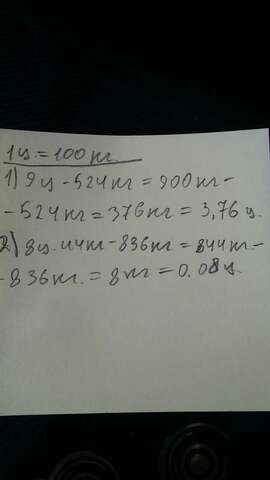 1ц. = 100 кг.
1) 9ц - 524кг = 900кг -
- 524кг = 376кг = 3,76 ц.
2) 8ц. 44кг - 836кг = 844кг. -
- 836кг. = 8кг = 0.08ц.